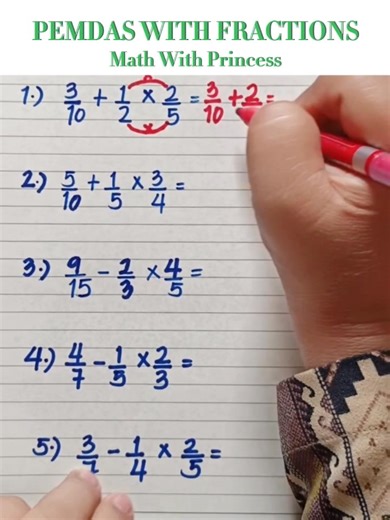 PEMDAS WITH FRACTIONS
Math With Princess
1.) 3/10 + 1/2 × 2/5 = 3/10 + 2 =
2.) 5/10 + 1/5 × 3/4 =
3.) 9/15 - 2/3 × 4/5 =
4.) 4/7 - 1/5 × 2/3 =
5.) 3/7 - 1/4 × 2/5 =